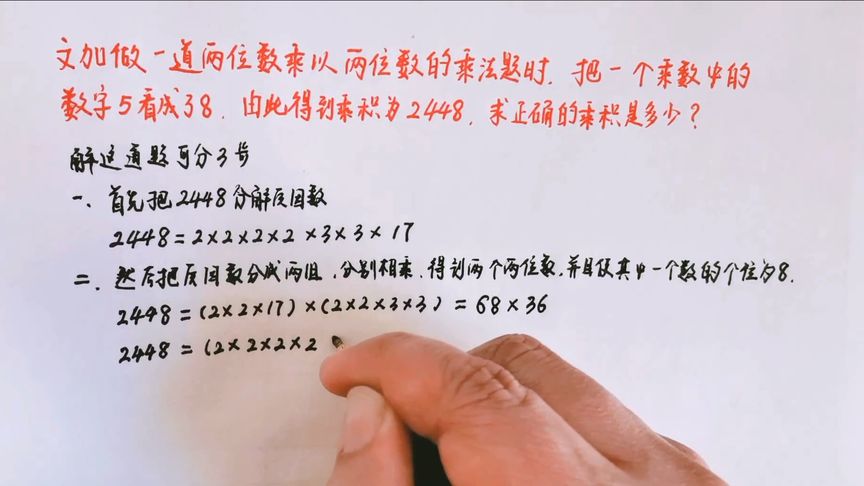 文加做一道两位数乘以两位数的乘法题时.把一个乘数中的
数字5看成了8.由此得到乘积为2448,求正确的乘积是多少?
解这道题可分3步
一、首先把2448分解质因数
2448=2×2×2×2×3×3×17
二、然后把质因数分成两组,分别相乘,得到两个两位数,并且使其中一个数的个位为8.
2448=(2×2×17)×(2×2×3×3)=68×36
2448=(2×2×2×2